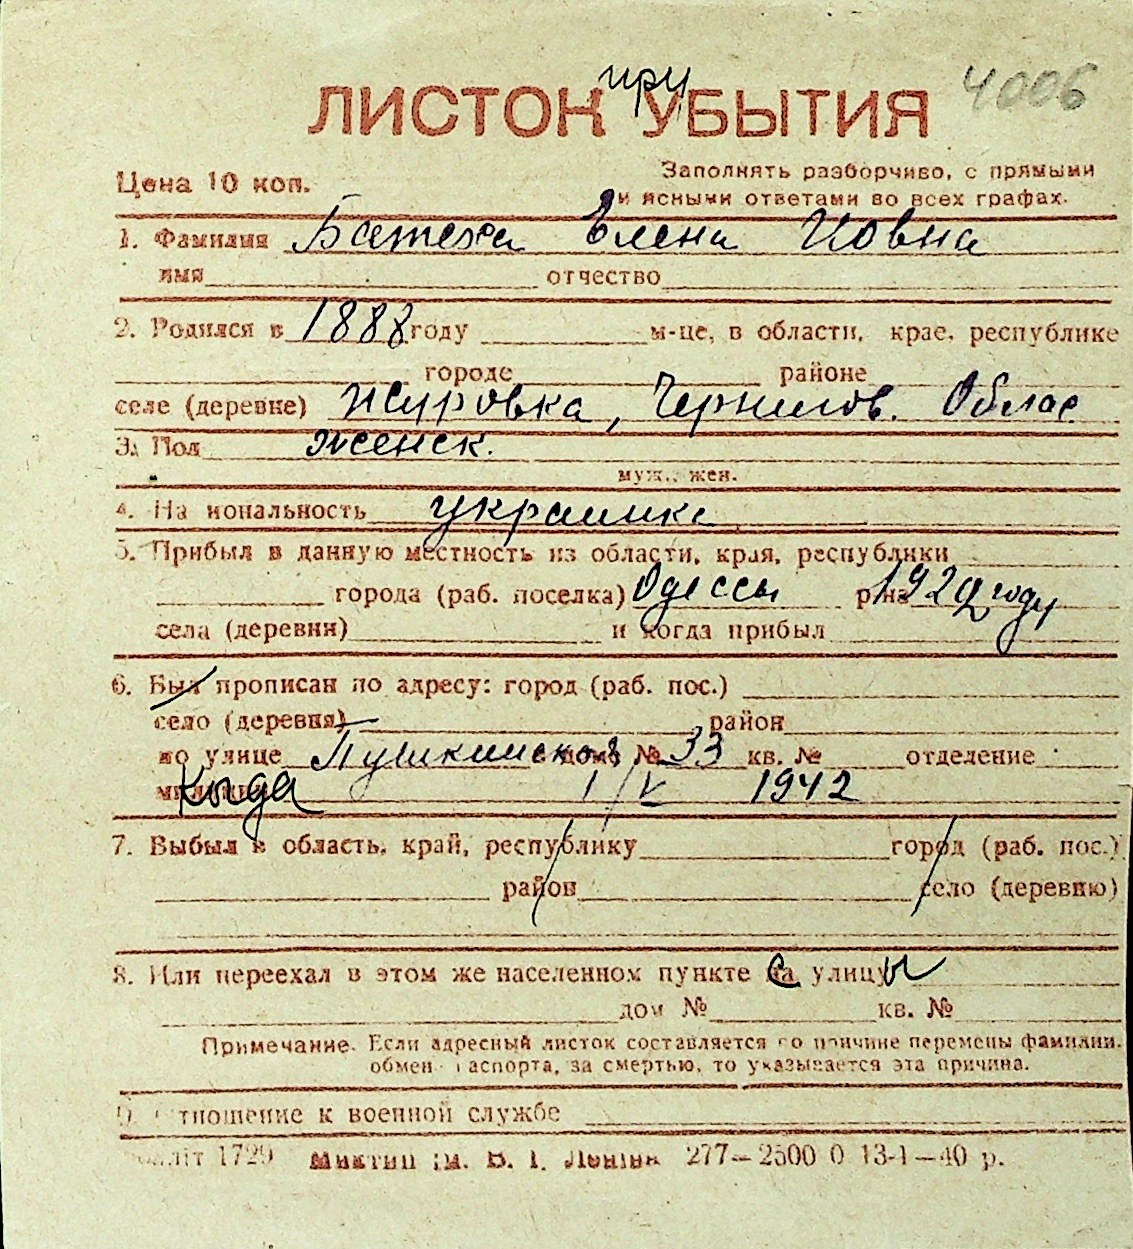 при
ЛИСТОК УБЫТИЯ 4006
Цена 10 коп.
Заполнять разборчиво, с прямыми
и ясными ответами во всех графах.
1. Фамилия Батеха Елена Иовна
имя отчество
2. Родился в 1888 году м-це, в области, крае, республике
городе районе
селе (деревне) Журовка, Чернигов. Облас
3. Пол женск.
муж., жен.
4. На иональность украинка
5. Прибыл в данную местность из области, края, республики
города (раб. поселка) Одессы р на 1929 году
села (деревни) и когда прибыл
6. Был прописан по адресу: город (раб. пос.)
село (деревня) район
по улице Пушкинская дом № 33 кв. № отделение
Когда 1/V 1942
7. Выбыл в область, край, республику город (раб. пос.)
район село (деревню)
8. Или переехал в этом же населенном пункте са улицы
дом № кв. №
Примечание. Если адресный листок составляется по причине перемены фамилии,
обмен паспорта, за смертью, то указывается эта причина.
9. тношение к военной службе
літ 1729 Миктип ім. В. І. Леніна 277—2500 0 13-1—40 р.